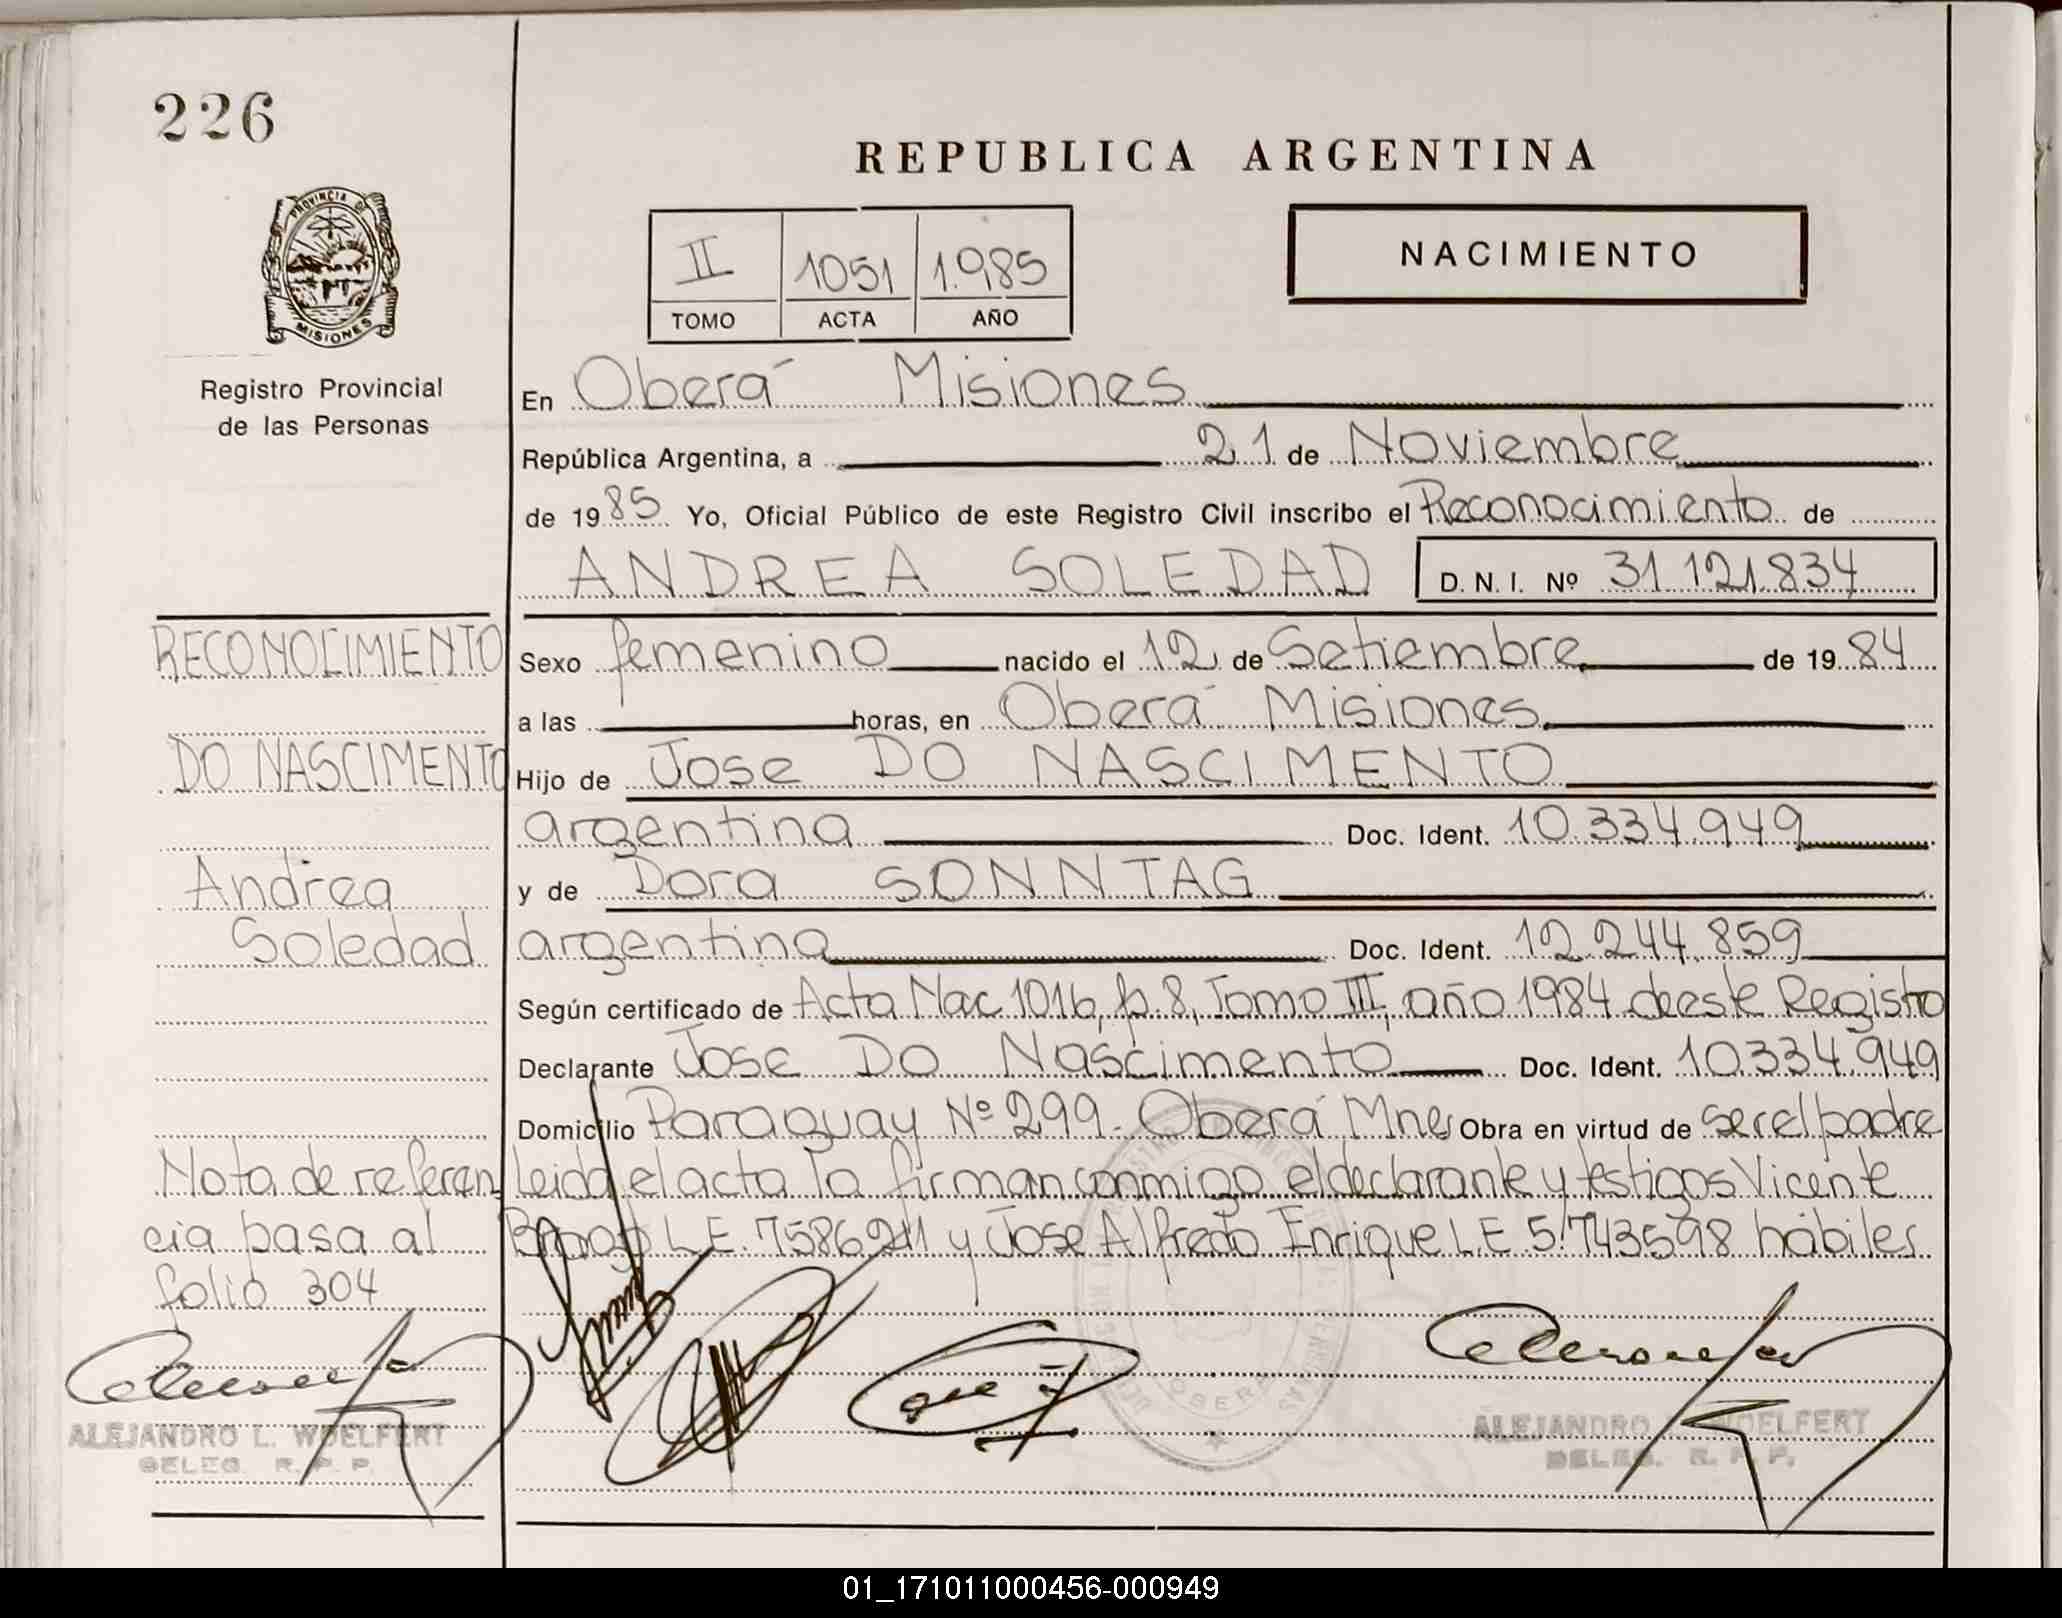 226
REPUBLICA ARGENTINA
PROVINCIA DE
MISIONES
II 1051 1.985
TOMO ACTA AÑO
NACIMIENTO
Registro Provincial
de las Personas
En Oberá Misiones
República Argentina, a 21 de Noviembre
de 1985 Yo, Oficial Público de este Registro Civil inscribo el Reconocimiento de
ANDREA SOLEDAD D. N. I. Nº 31.121.834
RECONOCIMIENTO
DO NASCIMENTO
Andrea
Soledad
Sexo femenino nacido el 12 de Setiembre de 1984
a las horas, en Oberá Misiones
Hijo de Jose DO NASCIMENTO
argentina Doc. Ident. 10.334.949
y de Dora SONNTAG
argentina Doc. Ident. 12.244.859
Según certificado de Acta Nac 1016, fº.8, Tomo III, año 1984 de este Registro
Declarante Jose Do Nascimento Doc. Ident. 10.334.949
Domicilio Paraguay Nº 299. Oberá Mnes Obra en virtud de ser el padre
Leida el acta la firman conmigo el declarante y testigos Vicente
L.E. y Jose Alfredo Enrique L.E 5.743598 hábiles
Nota de referen
cia pasa al
folio 304
ALEJANDRO L. WOELFERT
DELEG. R. P. P.
OBERA
ALEJANDRO L. WOELFERT
DELEG. R. P. P.
01_171011000456-000949